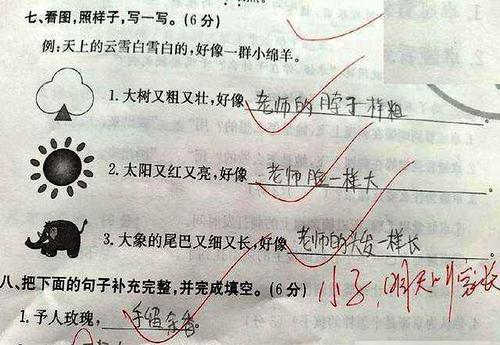 七、看图,照样子,写一写。(6分)
例:天上的云雪白雪白的,好像一群小绵羊。
1.大树又粗又壮,好像 老师的脖子一样粗。
2.太阳又红又亮,好像 老师脸一样大。
3.大象的尾巴又细又长,好像 老师的头发一样长。
八、把下面的句子补充完整,并完成填空。(6分)
小子,明天叫家长
1.予人玫瑰,手留余香。